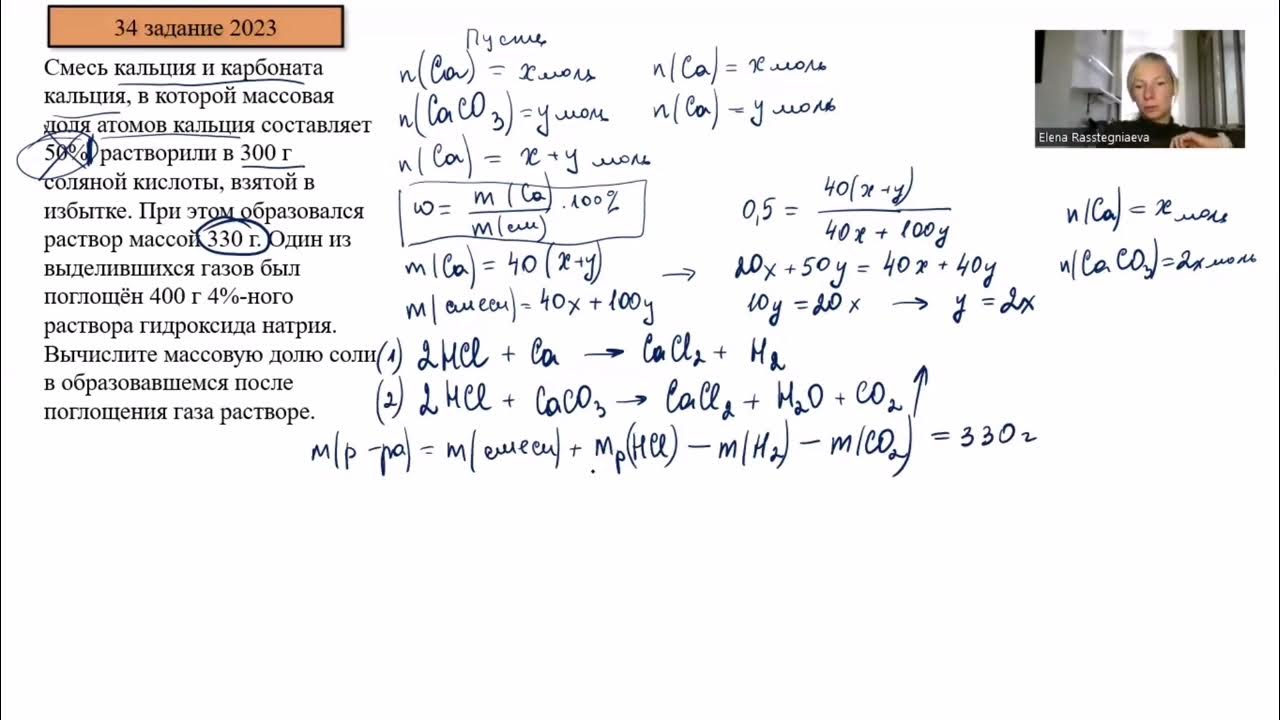 34 задание 2023
Смесь кальция и карбоната
кальция, в которой массовая
доля атомов кальция составляет
50% растворили в 300 г
соляной кислоты, взятой в
избытке. При этом образовался
раствор массой 330 г. Один из
выделившихся газов был
поглощён 400 г 4%-ного
раствора гидроксида натрия.
Вычислите массовую долю соли
в образовавшемся после
поглощения газа растворе.
Пусть
n(Ca) = x моль
n(CaCO₃) = y моль
n(Ca) = x + y моль
n(Ca) = x моль
n(Ca) = y моль
ω = m(Ca)/m(см) · 100%
m(Ca) = 40(x+y)
m(смеси) = 40x + 100y
0,5 = 40(x+y)/40x + 100y
→ 20x + 50y = 40x + 40y
10y = 20x → y = 2x
n(Ca) = x моль
n(CaCO₃) = 2x моль
(1) 2HCl + Ca → CaCl₂ + H₂
(2) 2HCl + CaCO₃ → CaCl₂ + H₂O + CO₂ ↑
m(р-ра) = m(смеси) + mр(HCl) − m(H₂) − m(CO₂) = 330 г
Elena Rasstegniaeva